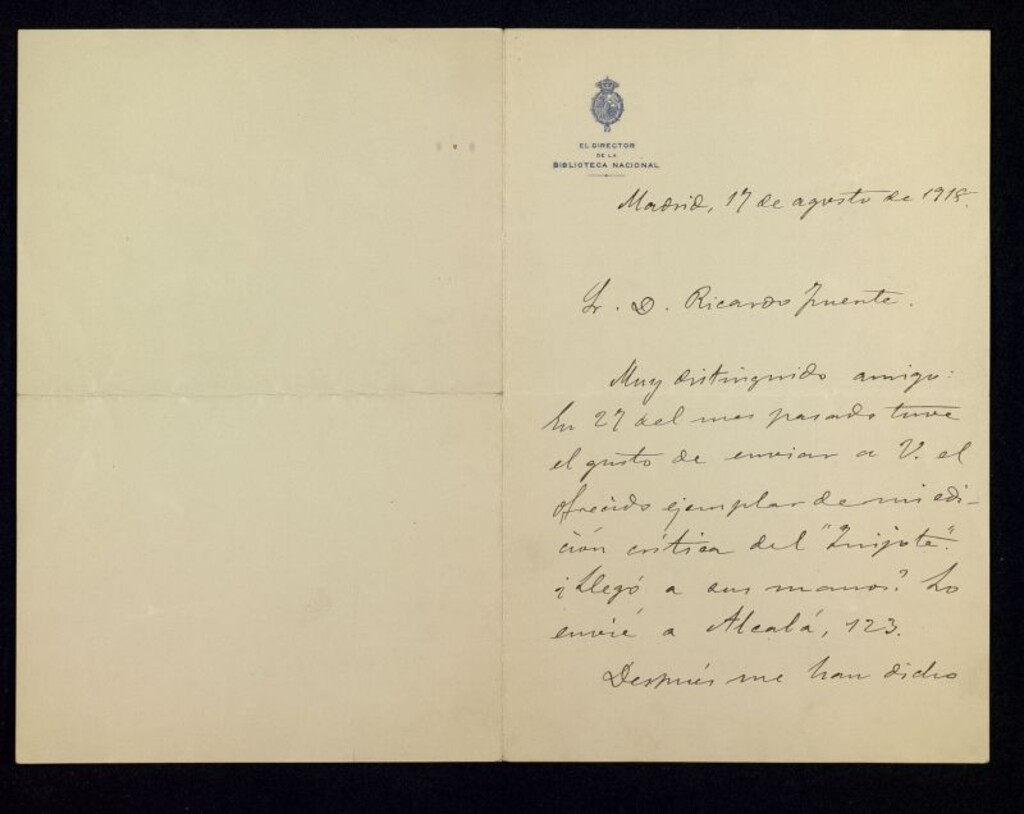 EL DIRECTOR
DE LA
BIBLIOTECA NACIONAL
Madrid, 17 de agosto de 1918.
Sr. D. Ricardo Fuente.
Muy distinguido amigo:
En 27 del mes pasado tuve
el gusto de enviar a V. el
ofrecido ejemplar de mi edi-
ción crítica del "Quijote".
¿Llegó a sus manos? Lo
envié a Alcalá, 123.
Después me han dicho